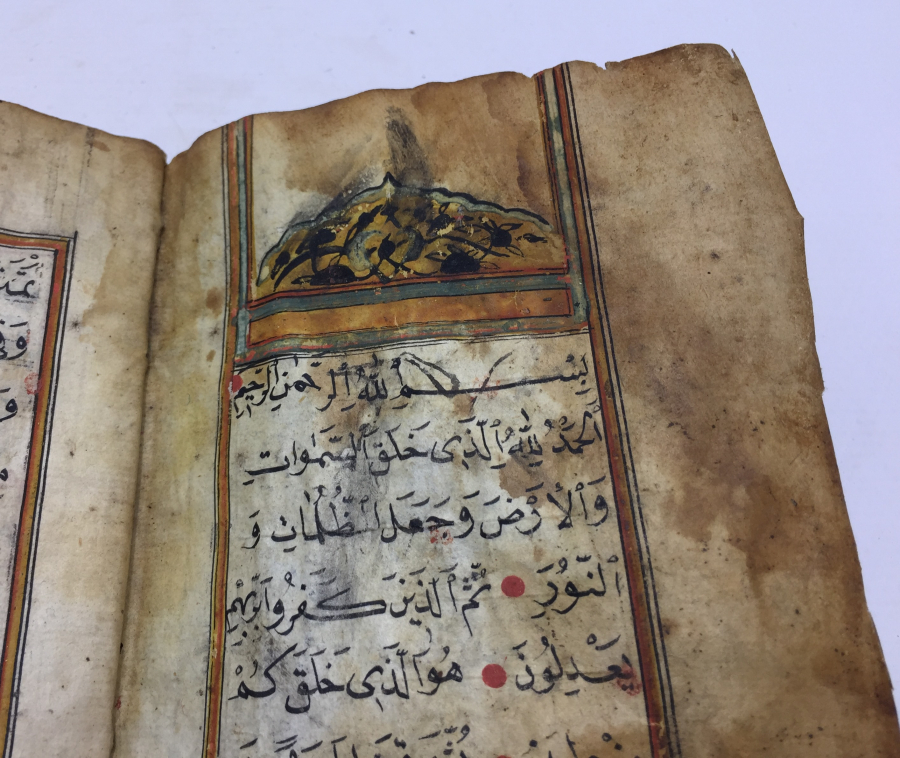 بِسْمِ ٱللَّهِ ٱلرَّحْمٰنِ ٱلرَّحِيمِ
ٱَلْحَمْدُ لِلَّهِ ٱلَّذِى خَلَقَ ٱلسَّمٰوَاتِ
وَٱلْأَرْضَ وَجَعَلَ ٱلظُّلُمَاتِ وَ
ٱلنُّورَ ثُمَّ ٱلَّذِينَ كَفَرُوا بِرَبِّهِمْ
يَعْدِلُونَ هُوَ ٱلَّذِى خَلَقَكُمْ